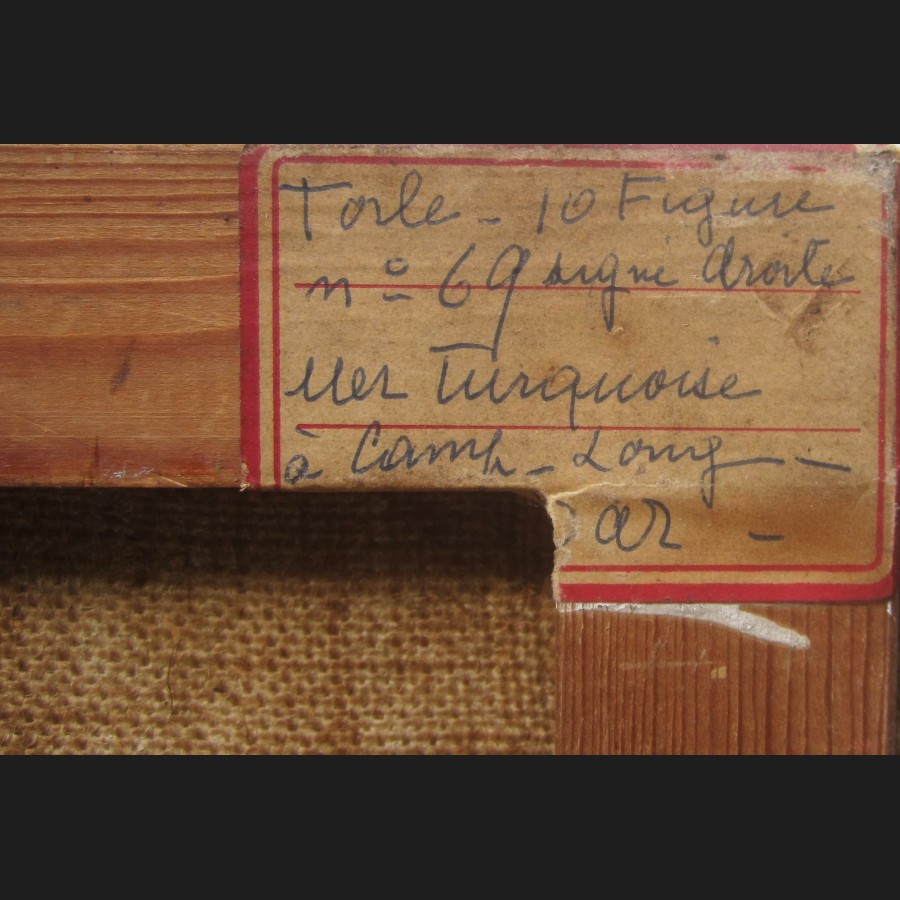 Toile - 10 Figure
n° 69 signé droite
Mer Turquoise
à Camp-Long -
ar -